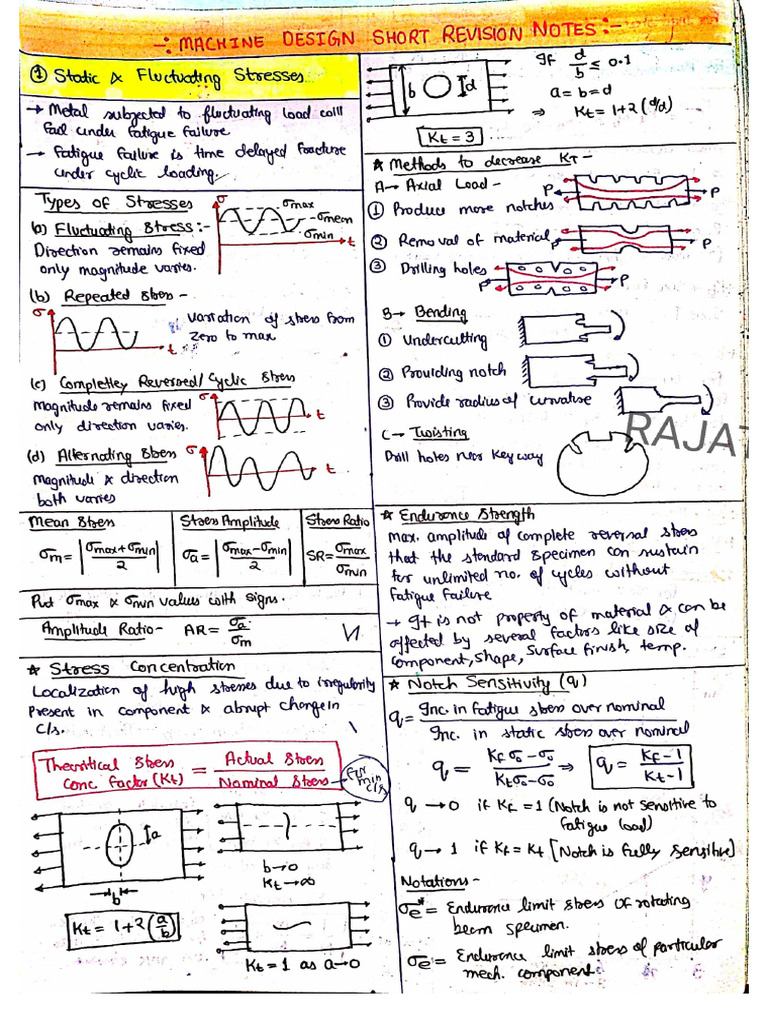 -: MACHINE DESIGN SHORT REVISION NOTES:-
① Static & Fluctuating Stresses
→ Metal subjected to fluctuating load will
fail under fatigue failure
→ Fatigue failure is time delayed fracture
under cyclic loading.
Types of Stresses
(a) Fluctuating Stress:-
Direction remains fixed
only magnitude varies.
σ
σmax
σmean
σmin
t
(b) Repeated Stress -
σ
t
variation of stress from
zero to max
(c) Completley Reversed/Cyclic Stress
Magnitude remains fixed
only direction varies.
σ
t
(d) Alternating Stress
Magnitude & direction
both varies
σ
t
Mean Stress
Stress Amplitude
Stress Ratio
σm = |σmax+σmin / 2|
σa = |σmax-σmin / 2|
SR = σmax / σmin
Put σmax & σmin values with signs.
Amplitude Ratio- AR = σa / σm
★ Stress Concentration
Localization of high stresses due to irregularity
Present in component & abrupt change in
C/s.
Theoritical Stress Conc factor (Kt) = Actual Stress / Nominal Stress
for min c/s
a
b
Kt = 1+2(a/b)
b→0
Kt→∞
Kt = 1 as a→0
b
d
If d/b ≤ 0.1
a=b=d
⇒ Kt = 1+2(d/d)
Kt = 3
★ Methods to decrease KT -
A→ Axial Load -
① Produce more notches
P P
② Removal of material
P P
③ Drilling holes
P P
B→ Bending
① Undercutting
② Providing notch
③ Provide radius of curvature
C→ Twisting
Drill holes near Keyway
RAJAT
★ Endurance Strength
Max. amplitude of complete reversal stress
that the standard specimen can sustain
for unlimited no. of cycles without
fatigue failure
→ It is not property of material & can be
affected by several factors like size of
component, shape, surface finish, temp.
★ Notch Sensitivity (q)
q = Inc. in fatigue stress over nominal / Inc. in static stress over nominal
q = Kf σo - σo / Kt σo - σo ⇒ q = Kf - 1 / Kt - 1
q → 0 if Kf = 1 (Notch is not sensitive to
fatigue load)
q → 1 if Kf = Kt [Notch is fully sensible]
Notations -
σe* = Endurance limit stress of rotating
beam specimen.
σe = Endurance limit stress of particular
mech. component.